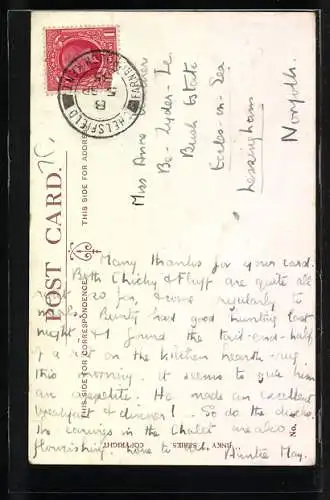 POST CARD.
THIS SIDE FOR CORRESPONDENCE
THIS SIDE FOR ADDRESS
HELSFIELD
Miss Anne
Be-Zyder-Ze
Bush Estate
Eccles-on-Sea
Lessingham
Norfolk.
Many thanks for your card.
Both Chicky & Fluff are quite all
right so far, & come regularly to
meals. Bunty had good hunting last
night & I found the tail-end-half
of a rat on the kitchen hearth-rug
this morning. It seems to give him
an appetite. He made an excellent
breakfast & dinner! So do the ducks.
The earwigs in the Chalet are also
flourishing. Love to all. Auntie May.
COPYRIGHT
JINKY SERIES
No.